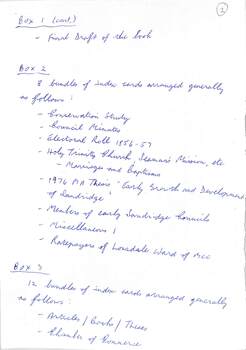 2
Box 1 (cont.)
- Final Draft of the book
Box 2
8 bundles of index cards arranged generally
as follows:
- Conservation Study
- Council Minutes
- Electoral Roll 1956-57
- Holy Trinity Church, Seaman's Mission, etc
- Marriages and Baptisms
- 1976 MA Thesis "Early Growth and Development
of Sandridge"
- Members of early Sandridge Councils
- Miscellaneous 1
- Ratepayers of Lonsdale Ward of MCC
Box 3
12 bundles of index cards arranged generally
as follows:
- Articles / Books / Theses
- Chamber of Commerce